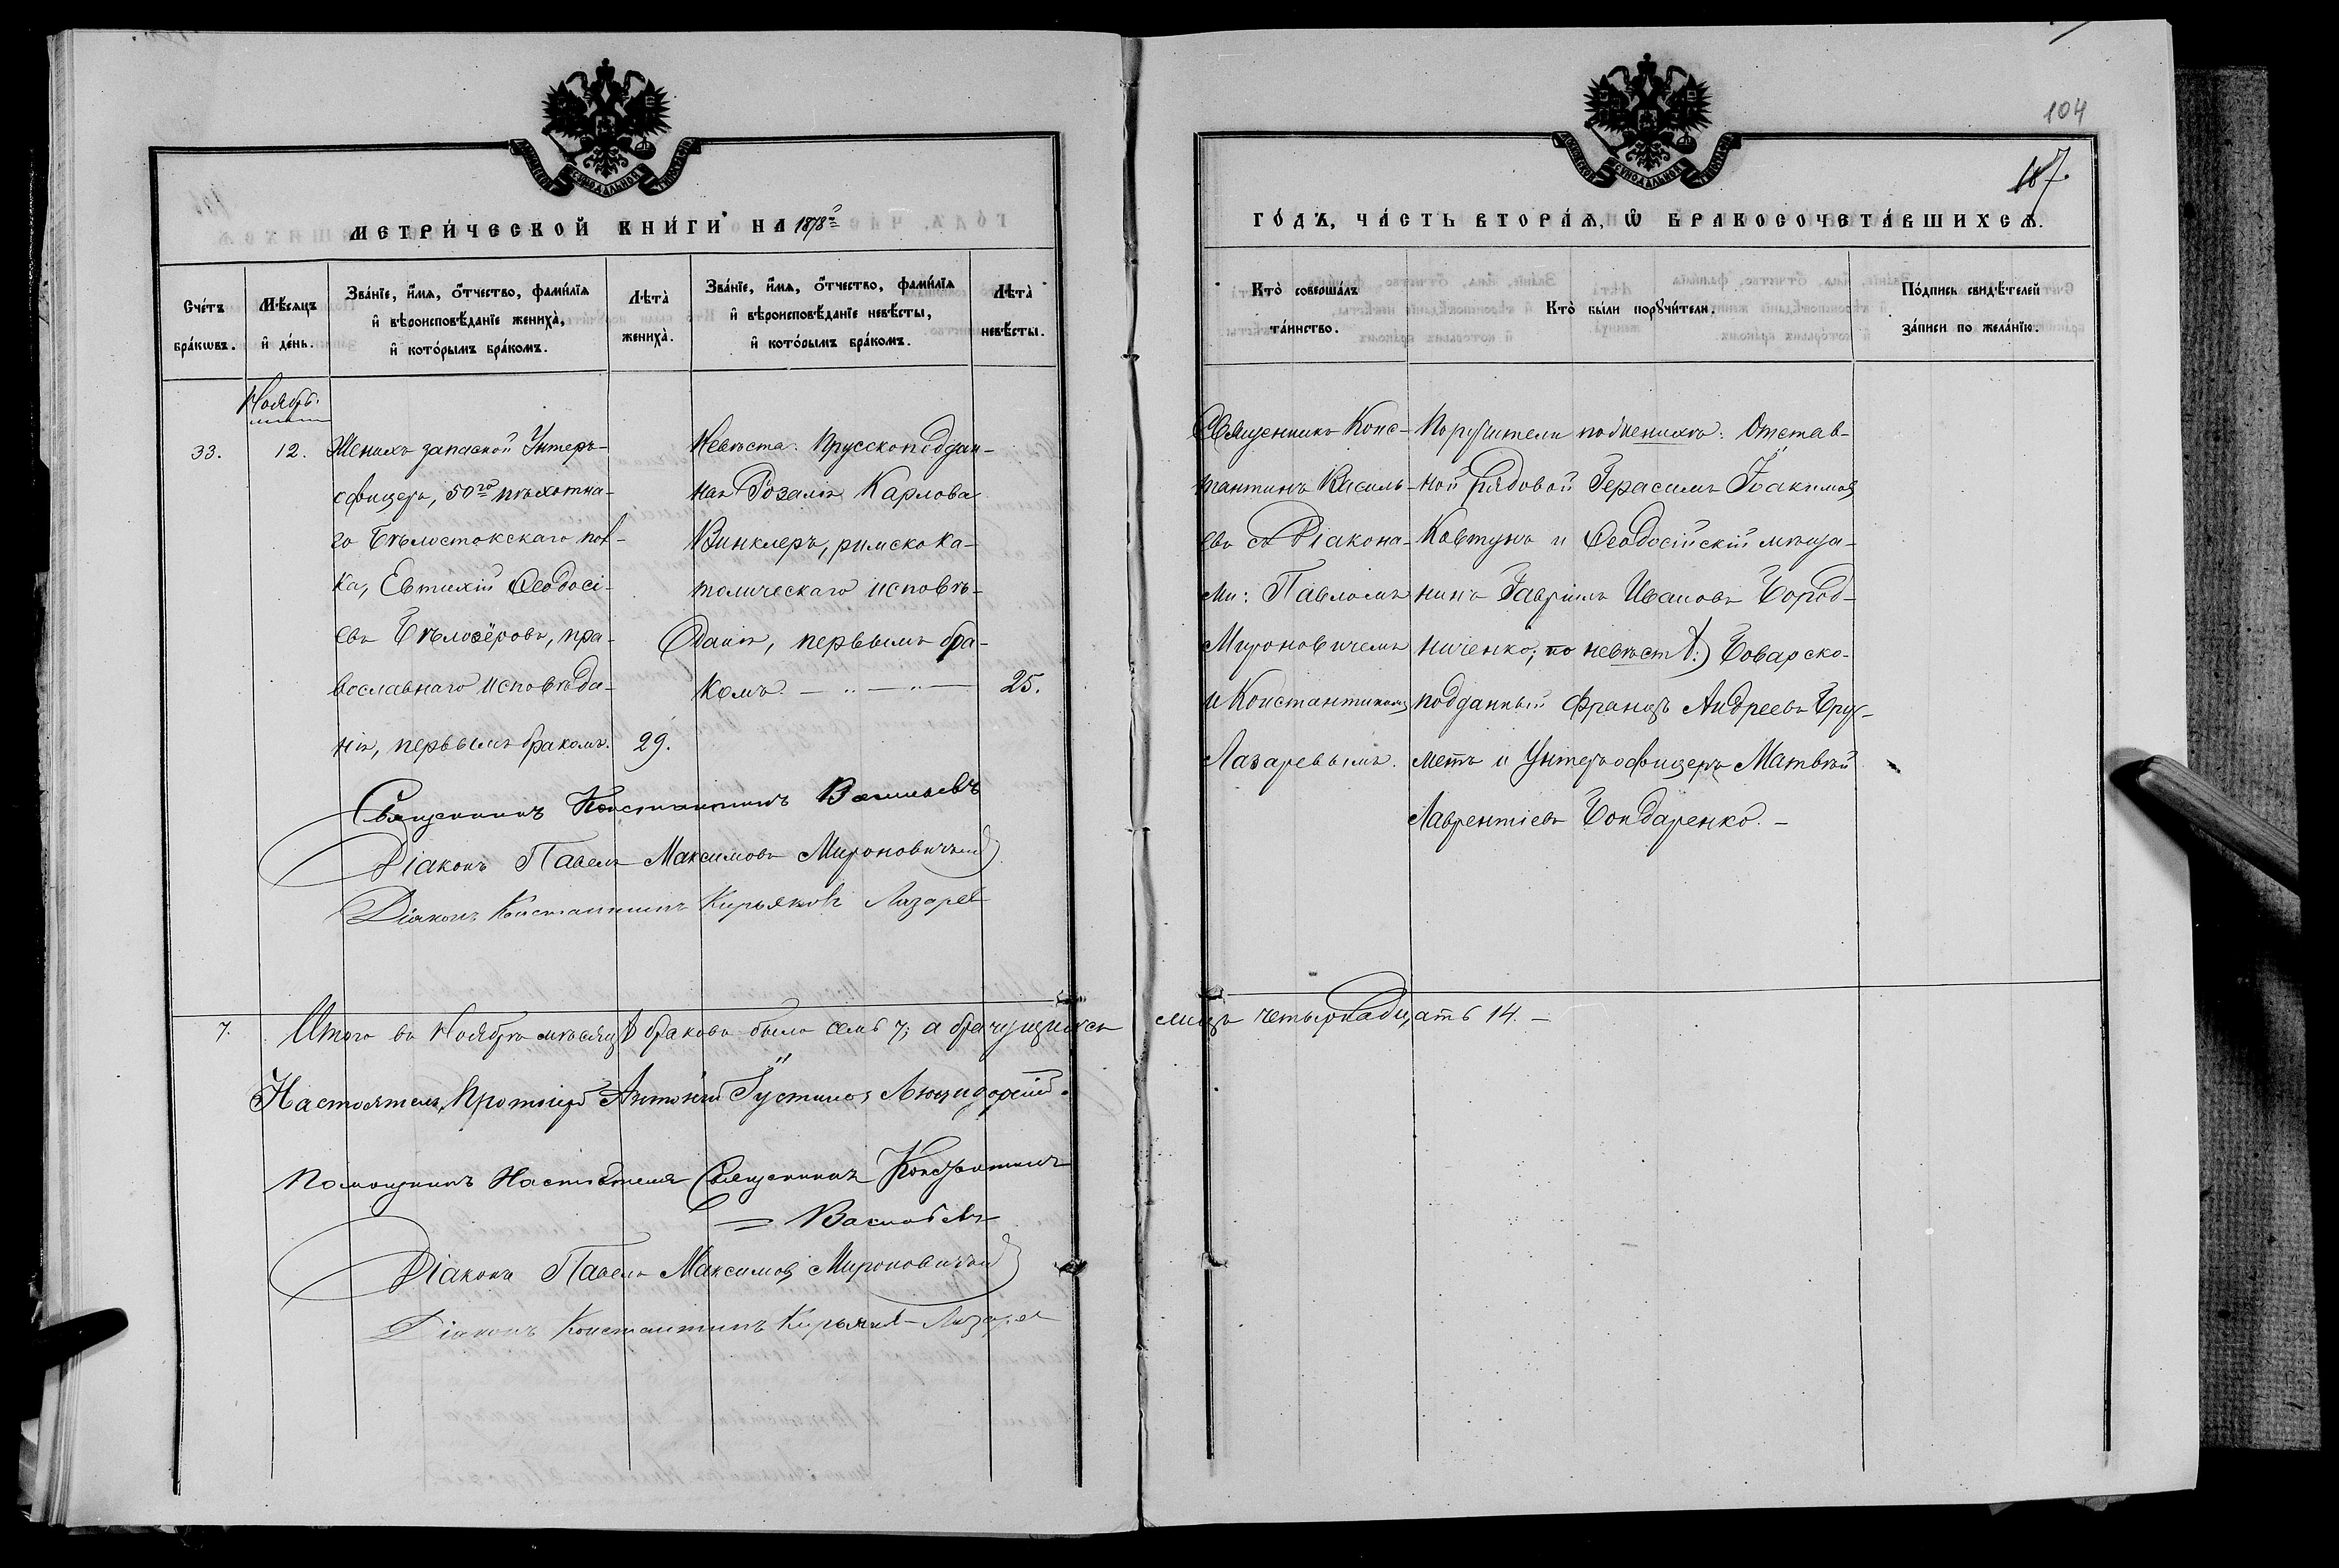 104
187.
МЕТРИ́ЧЕСКОЙ КНИ́ГИ НА 1878й
ГО́ДЪ, ЧА́СТЬ ВТОРА́Ѧ, Ѽ БРАКОСОЧЕТА́ВШИХСѦ.
Сче́тъ бра́кѡвъ.
Мѣ́сѧцъ и҆ де́нь.
Зва́нїе, и҆́мѧ, ѻ҆́тчество, фами́лїѧ
и҆ вѣроисповѣ́данїе жениха̀,
и҆ кото́рымъ бра́комъ.
Лѣта̀ жениха̀.
Зва́нїе, и҆́мѧ, ѻ҆́тчество, фами́лїѧ
и҆ вѣроисповѣ́данїе невѣ́сты,
и҆ кото́рымъ бра́комъ.
Лѣта̀ невѣ́сты.
Кто̀ соверша́лъ та́инство.
Кто̀ бы́ли порꙋчи́тели.
По́дпись свидѣ́телей за́писи по жела́нїю.
Ноябрь.
33.
12.
Женихъ запасной Унтеръ-
офицеръ, 50го пѣхотна-
го Бѣлостокскаго пол-
ка, Евтихій Ѳеодосі-
евъ Бѣлозёровъ, пра-
вославнаго исповѣда-
нія, первымъ бракомъ.
29.
Невѣста: Прусскоподдан-
ная Розалія Карлова
Винклеръ, римскока-
толическаго исповѣ-
данія, первымъ бра-
комъ. —
25.
Священникъ Конс-
тантинъ Василь-
евъ съ Діакона-
ми: Павломъ
Мироновичемъ
и Константиномъ
Лазаревымъ.
Поручители по женихѣ: Отстав-
ной рядовой Герасимъ Іоакимовъ
Ковтунъ и Ѳеодосійскій мѣща-
нинъ Гавріилъ Ивановъ Бород-
ниченко; по невѣстѣ:) Баварско-
подданный Францъ Андреевъ Бру-
метъ и Унтеръ офицеръ Матвѣй
Лаврентіевъ Бондаренко. —
Священникъ Константинъ Васильевъ
Діаконъ Павелъ Максимовъ Мироновичъ
Діаконъ Константинъ Кирьяковъ Лазарев
7.
Итого въ Ноябрѣ мѣсяцѣ браковъ было семь 7; а брачущихся
лицъ четырнадцать 14. —
Настоятель, Протоіерей Антоній Іустиновъ
Помощникъ Настоятеля Священникъ Константинъ
= Васильевъ
Діаконъ Павелъ Максимовъ Мироновичъ
Діаконъ Константинъ Кирьяков Лазарев